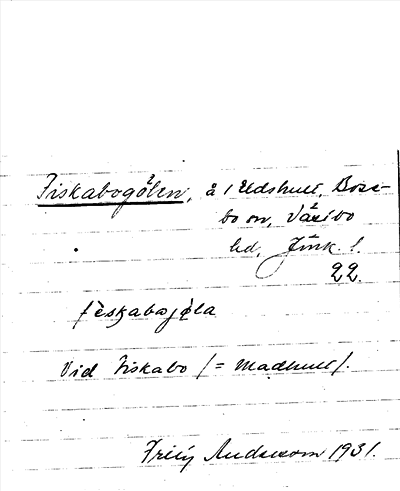 Fiskabogölen, å 1 Udshult, Bosebo sn, Västbo hd, Jönk. l.
22.
fèskabogöla
Vid Fiskabo (= Madhult).
Andersson 1931.